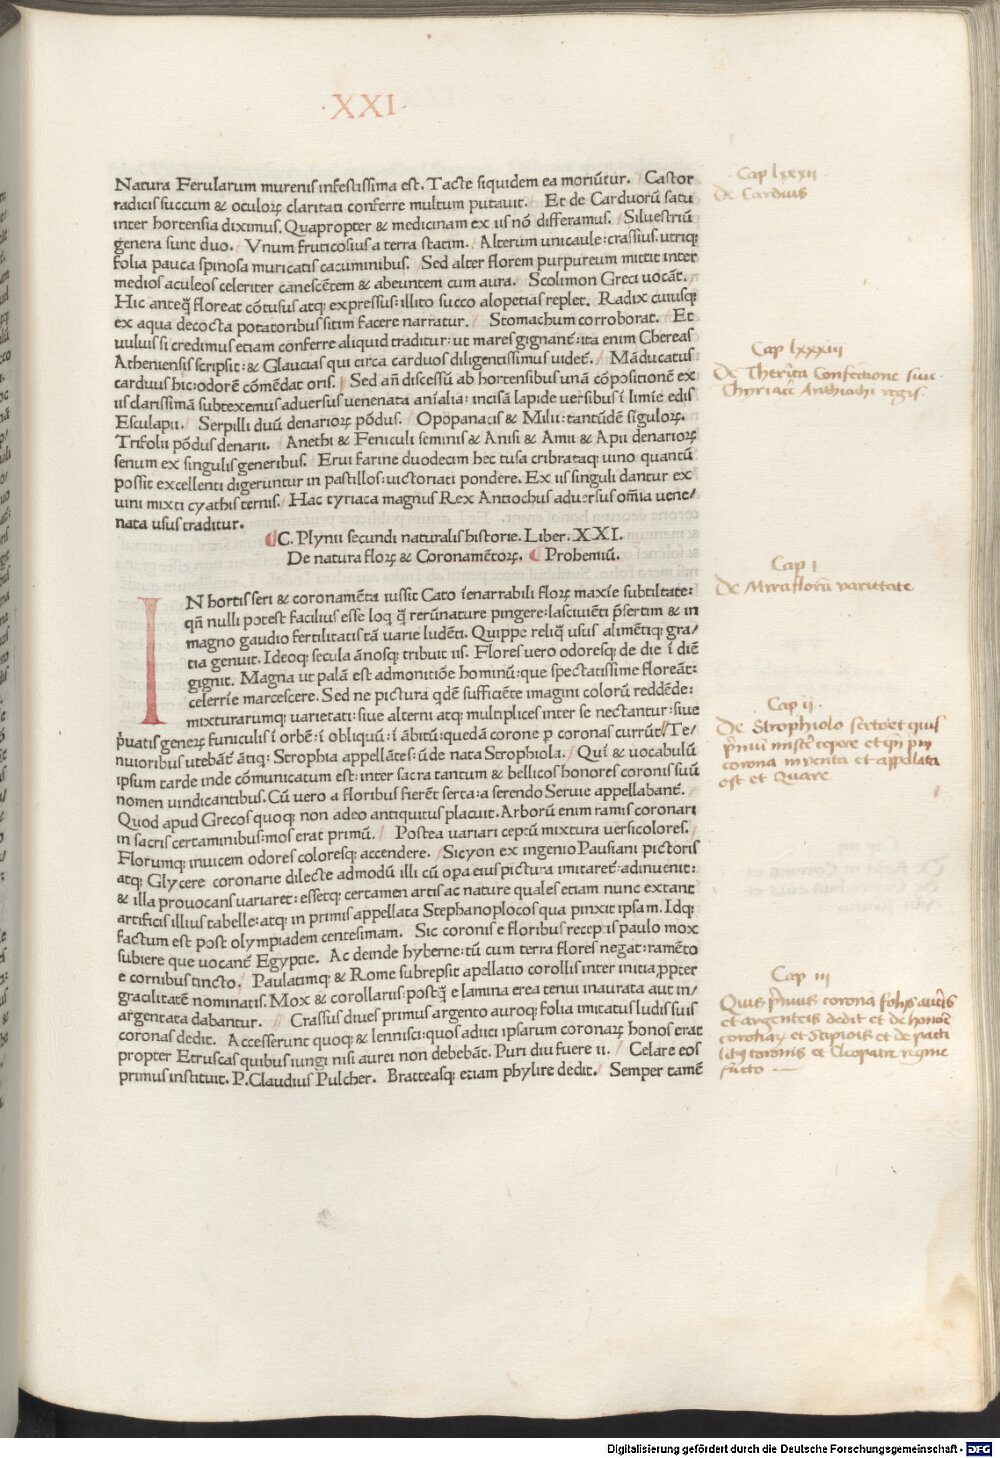 ·XXI·
Natura Ferularum murenis infestissima est. Tacte siquidem ea moriūtur. Castor
radicis succum & oculoꝝ claritati conferre multum putauit. Et de Carduorū satu
inter hortensia diximus. Quapropter & medicinam ex iis nō differamus. Siluestriū
genera sunt duo. Vnum fruticosius a terra statim. Alterum unicaule: crassius. utriq;
folia pauca spinosa muricatis cacuminibus. Sed alter florem purpureum mittit inter
medios aculeos celeriter canescētem & abeuntem cum aura. Scolimon Greci uocāt.
Hic anteq̄ floreat cōtusus atq; expressus: illito succo alopetias replet. Radix cuiusq;
ex aqua decocta potatoribus sitim facere narratur. Stomachum corroborat. Et
uuluis si credimus etiam conferre aliquid traditur: ut mares gignant: ita enim Chereas
Atheniensis scripsit: & Glaucias qui circa carduos diligentissimus uidet. Māducatus
carduus hic: odorē cōmēdat oris. Sed añ discessū ab hortensibus unā cōpositionē ex
iis clarissimā subtexemus aduersus uenenata anialia: incisā lapide uersibus ī limie edis
Esculapii. Serpilli duū denarioꝝ pōdus. Opopanacis & Milii: tantūdē siguloꝝ.
Trifolii pōdus denarii. Anethi & Feniculi seminis & Anisi & Amii & Apii denarioꝝ
senum ex singulis generibus. Erui farine duodecim hec tusa cribrataq; uino quantū
possit excellenti digeruntur in pastillos: uictoriati pondere. Ex iis singuli dantur ex
uini mixti cyathis ternis. Hac tyriaca magnus Rex Antiochus aduersus om̄ia uene/
nata usus traditur.
C. Plynii secundi naturalis historie. Liber. XXI.
De natura floꝝ & Coronamētoꝝ. Probemiū.
IN hortis seri & coronamēta iussit Cato ienarrabili floꝝ maxie subtiltate:
qn̄ nulli potest facilius esse loq q̄ rerū nature pingere: lasciuiēti p̄sertim & in
magno gaudio fertilitatis tā uarie ludēti. Quippe reliq̄ usus alimētiq; gra/
tia genuit. Ideoq; secula ānosq; tribuit iis. Flores uero odoresq; de die ī diē
gignit. Magna ut palā est admonitiōe hominū: que spectatissime floreāt:
celerrīe marcescere. Sed ne pictura qdē sufficiēte imagini colorū reddēde:
mixturarumq; uarietati: siue alterni atq; multiplices inter se nectantur: siue
p̄uatis generꝝ funiculis ī orbē: ī obliquū: ī ābitū: quedā corone ꝑ coronas currūt. Te/
nuioribus utebāt ātiq; Strophia appellātes: ūde nata Strophiola. Quī & uocabulū
ipsum tarde inde cōmunicatum est: inter sacra tantum & bellicos honores coronis suū
nomen uindicantibus. Cū uero a floribus fierēt serta: a serendo Seruie appellabant.
Quod apud Grecos quoq; non adeo antiquitus placuit. Arborū enim ramis coronari
in sacris certaminibus: mos erat primū. Postea uariari ceptū mixtura uersicolores.
Florumq; inuicem odores coloresq; accendere. Sicyon ex ingenio Pausiani pictoris
atq; Glycere coronarie dilecte admodū illi cū opa eius pictura imitaret: adinuenit:
& illa prouocans uariaret: essetq; certamen artis ac nature quales etiam nunc extant
artificis illius tabelle: atq; in primis appellata Stephanoplocos qua pinxit ipsam. Idq;
factum est post olympiadem centesimam. Sic coronis e floribus receptis paulo mox
subiere que uocant Egyptie. Ac deinde hyberne: tū cum terra flores negat: ramēto
e cornibus tincto. Paulatimq; & Rome subrepsit apellatio corollis inter initia ꝓpter
gracilitatē nominatis. Mox & corollariis: postq̄ e lamina erea tenui inaurata aut in/
argentata dabantur. Crassus diues primus argento auroq; folia imitatus ludis suis
coronas dedit. Accesserunt quoq; & lennisci: quos adiici ipsarum coronaꝝ honos erat
propter Etruscas quibus iungi nisi aurei non debebāt. Puri diu fuere ii. Celare eos
primus instituit. P. Claudius Pulcher. Bratteasq; etiam phylire dedit. Semper tamē
Cap lxxxii
de Carduis
Cap lxxxiii
De Confectione siue
Thyriace Anthiochi regis
Cap I
de Mira florū varietate
Cap ii.
De Strophiolo
corona inventa et appellata
est et Quare
Cap iii
Quis p̄mus corona folijs aureis
et argenteis dedit et de honore
coronaꝝ et Scipionis et de
coronis et Cleopatre regine
Digitalisierung gefördert durch die Deutsche Forschungsgemeinschaft - DFG